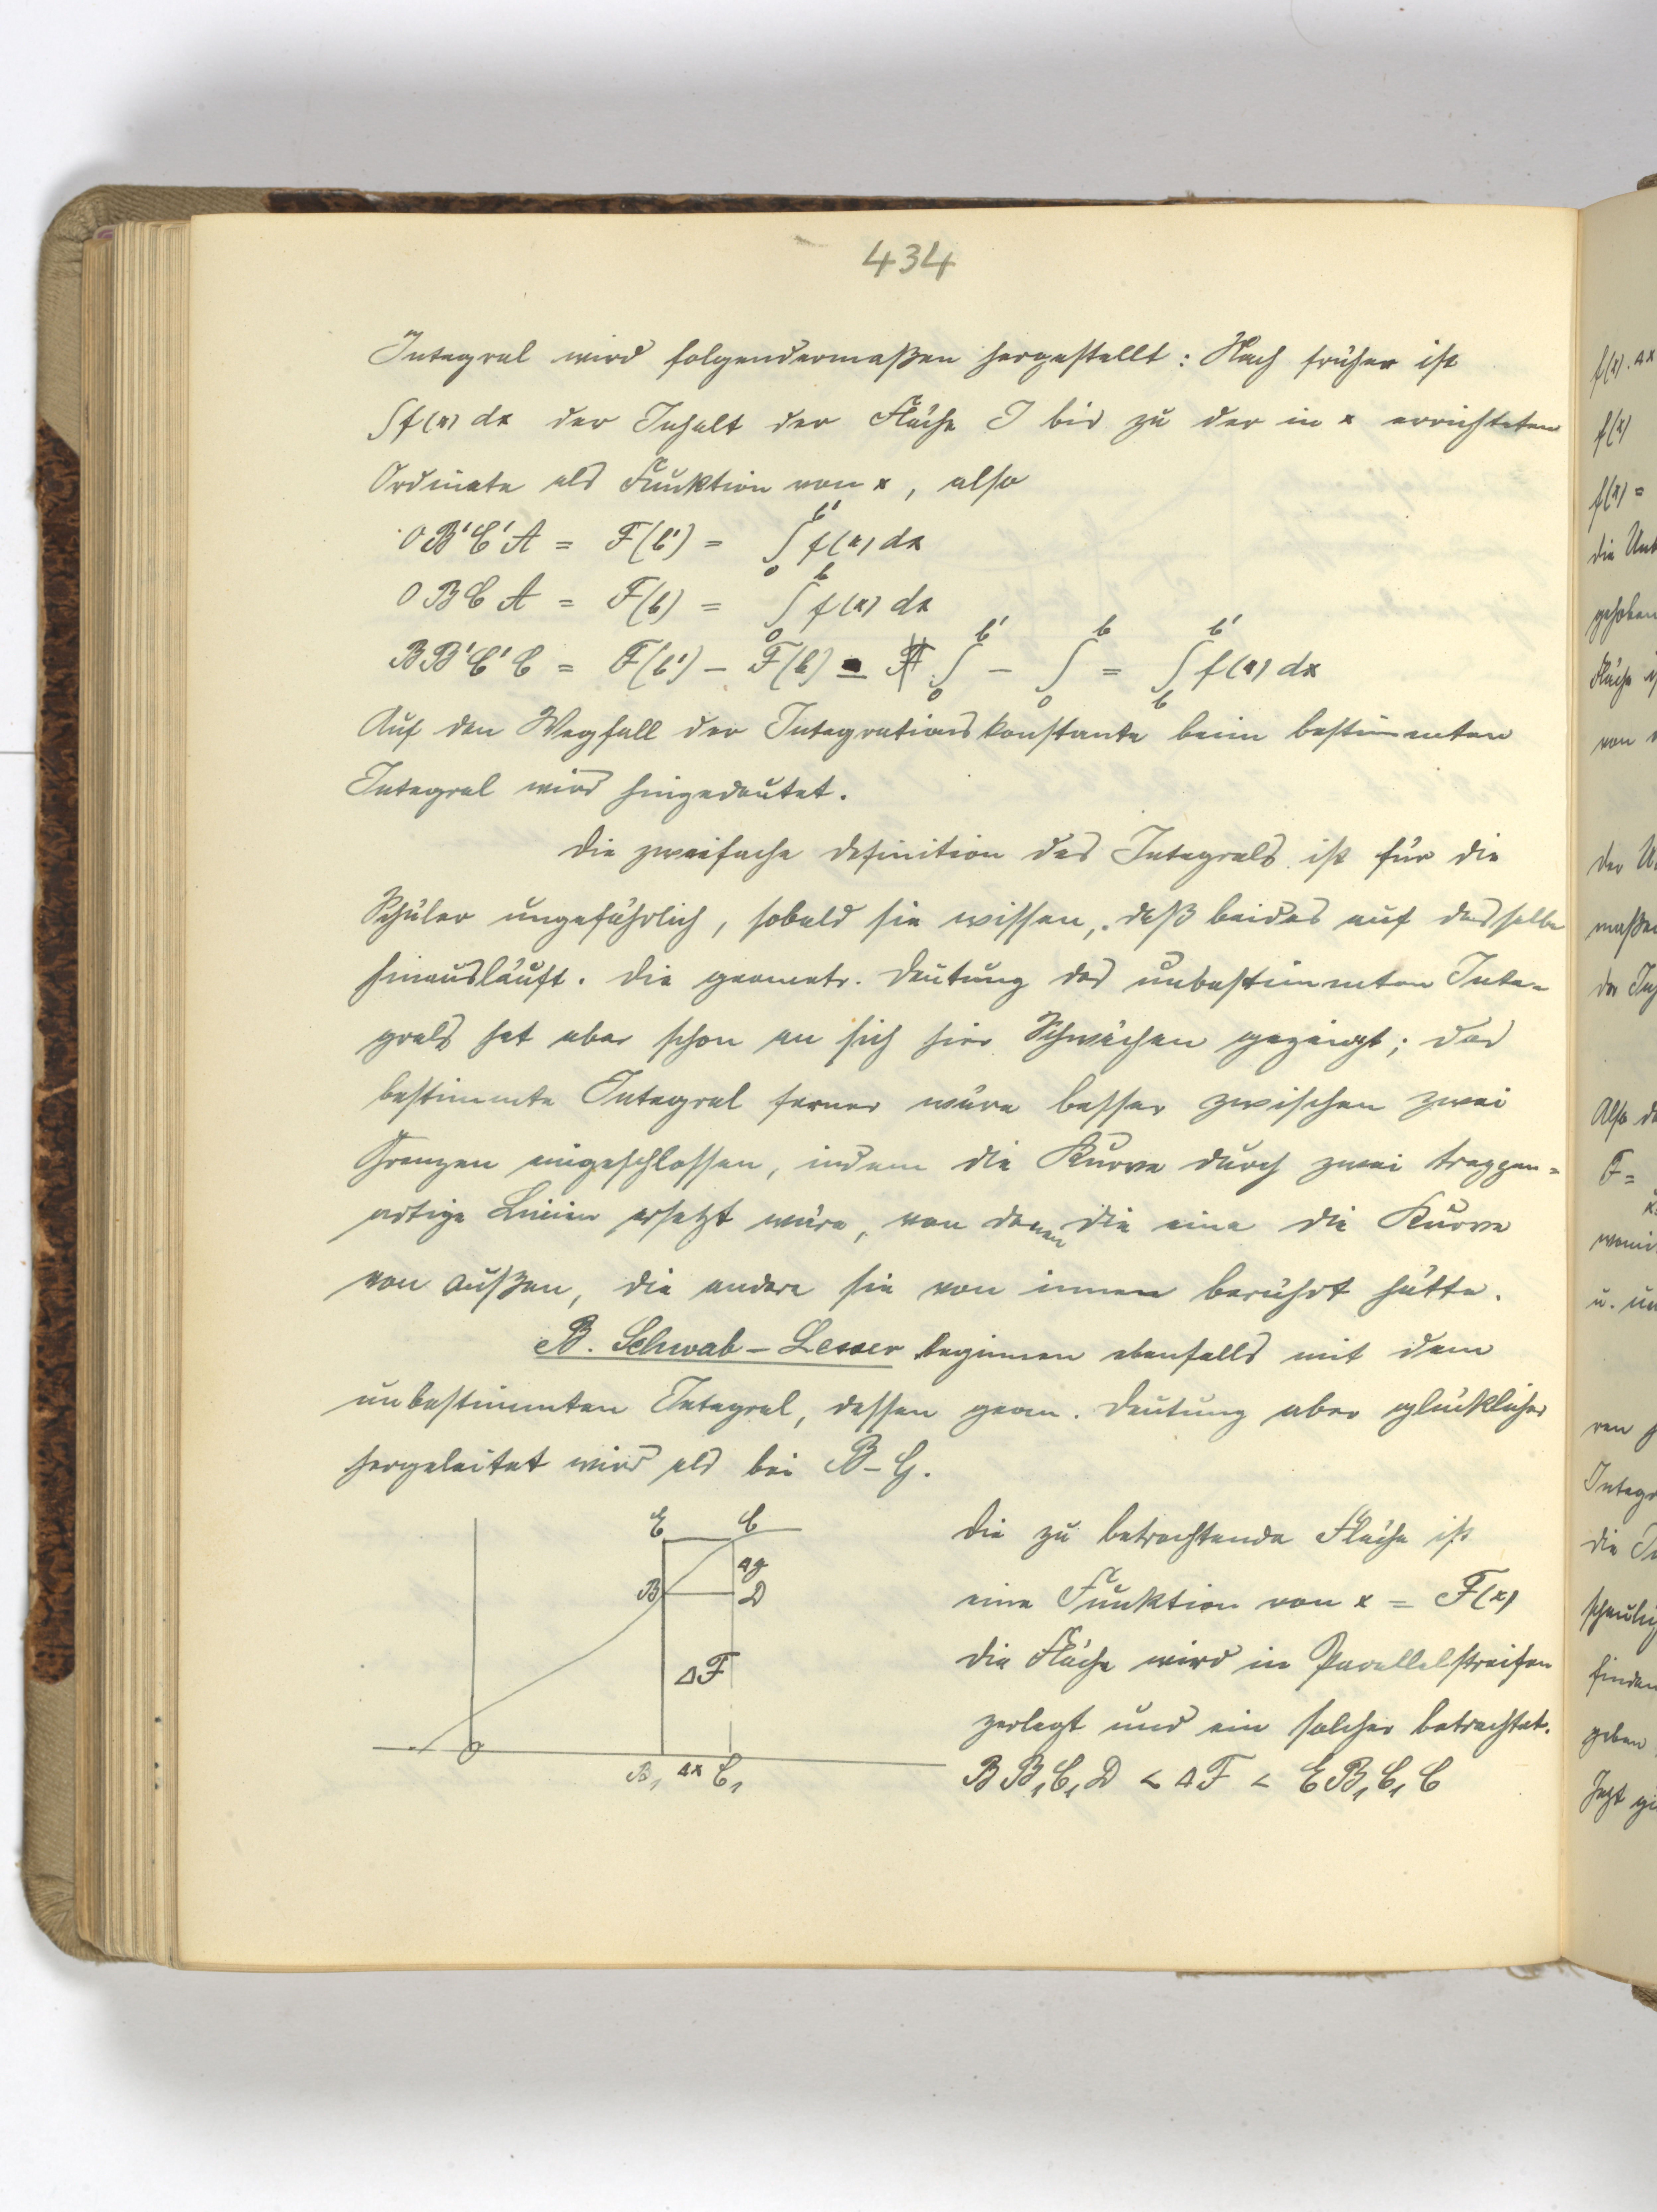 434
Integral wird folgendermaßen hergestellt: Nach früher ist
∫f(x) dx der Inhalt der Fläche J bis zu der in x errichteten
Ordinate als Funktion von x, also
OB'C'A = F(b') = ∫₀^b' f(x) dx
OBCA = F(b) = ∫₀^b f(x) dx
BB'C'C = F(b') – F(b) = ∫₀^b' – ∫₀^b = ∫_b^b' f(x) dx
Auf den Wegfall der Integrationskonstante beim bestimmten
Integral wird hingedeutet.
Die zweifache Definition des Integrals ist für die
Schüler ungefährlich, sobald sie wissen, daß beides auf dasselbe
hinausläuft. Die geometr. Deutung des unbestimmten Inte-
grals hat aber schon an sich hier Schwächen gezeigt; das
bestimmte Integral ferner wäre besser zwischen zwei
Grenzen eingeschlossen, indem die Kurve durch zwei treppen-
artige Linien ersetzt wäre, von denen die eine die Kurve
von außen, die andere sie von innen berührt hätte.
B. Schwab – Lesser beginnen ebenfalls mit dem
unbestimmten Integral, dessen geom. Deutung aber glücklicher
hergeleitet wird als bei B–G.
Die zu betrachtende Fläche ist
eine Funktion von x = F(x)
Die Fläche wird in Parallelstreifen
zerlegt und ein solcher betrachtet.
BB₁C₁D < ΔF < EB₁C₁C
E C
Δy
B D
ΔF
O
B₁ Δx C₁
f(x). Δx
f(x)
f(x) =
gehoben
Fläche
von
der
maßen
Also
F =
Integr
die
finden
geben
Jetzt